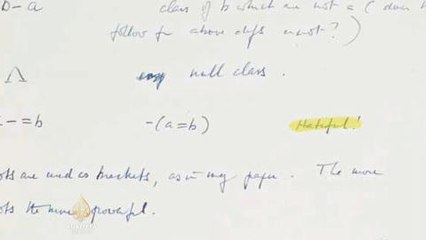 b - a class of b which are not a (does
follow above defs not?)
Λ null class.
- = b -(a = b) Hateful!
ots are used as brackets, as in my paper. The more
ots the more powerful.